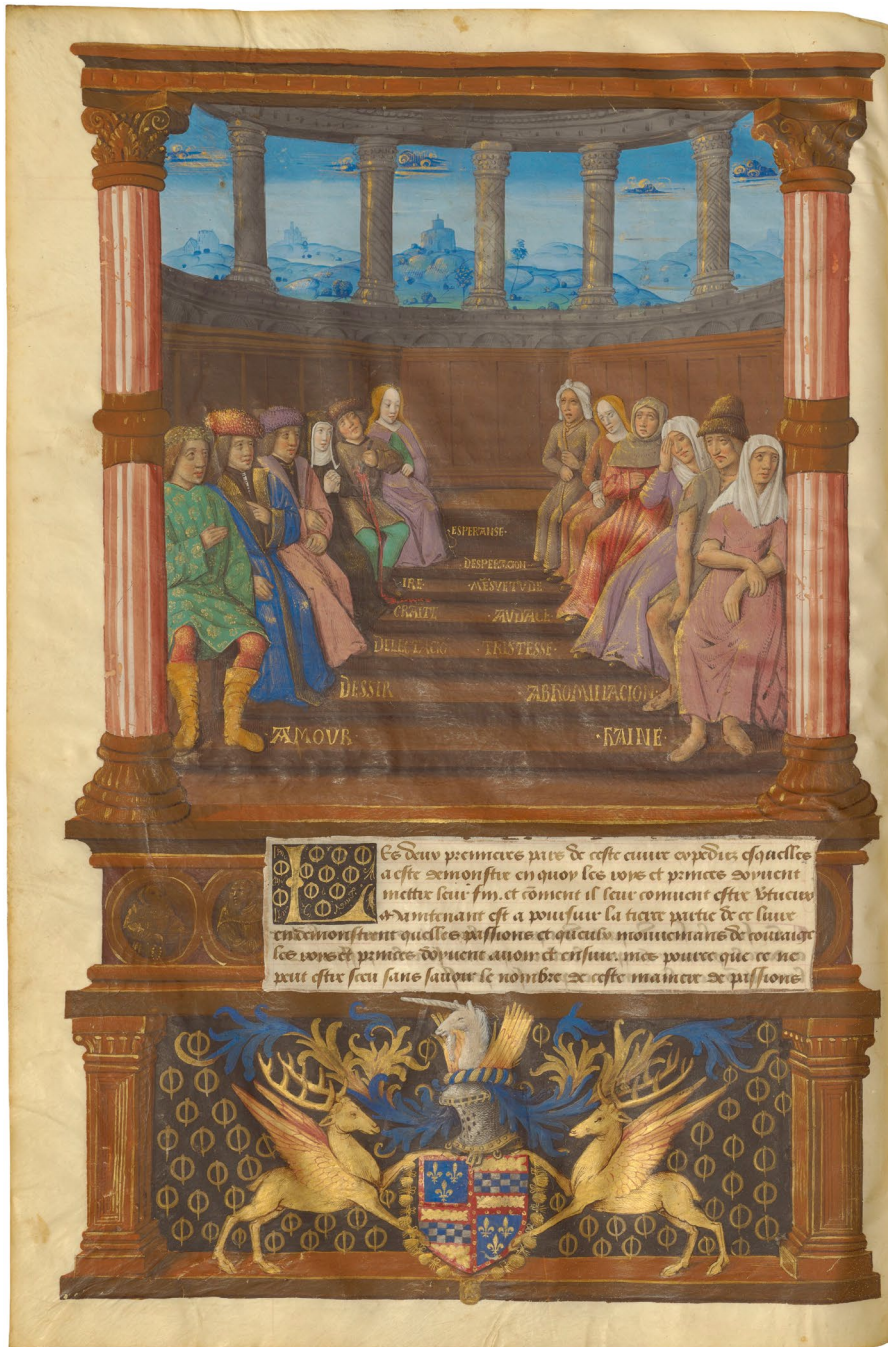 ·ESPERANSE·
DESPERACION
·IRE·
MĒSVETVDE
CRAĪTE
·AVDACE·
DELECTACIŌ
TRISTESSE·
DESSIR
·ABHOMINACION·
·AMOUR·
·HAINE·
LEs deux premieres pars de ceste euure expediez esquelles
a este demonstre en quoy les roys et princes doyuent
mettre leur fin. et cōment il leur conuient estre vtueux
Maintenant est a poursuir la tierce partie de ce liure
en demonstrent quelles passions et queulx mouuemans de couraige
les roys et princes doyuent auoir et ensuir. mes pource que ce ne
peut estre sceu sans sauoir le nombre de ceste maniere de passions